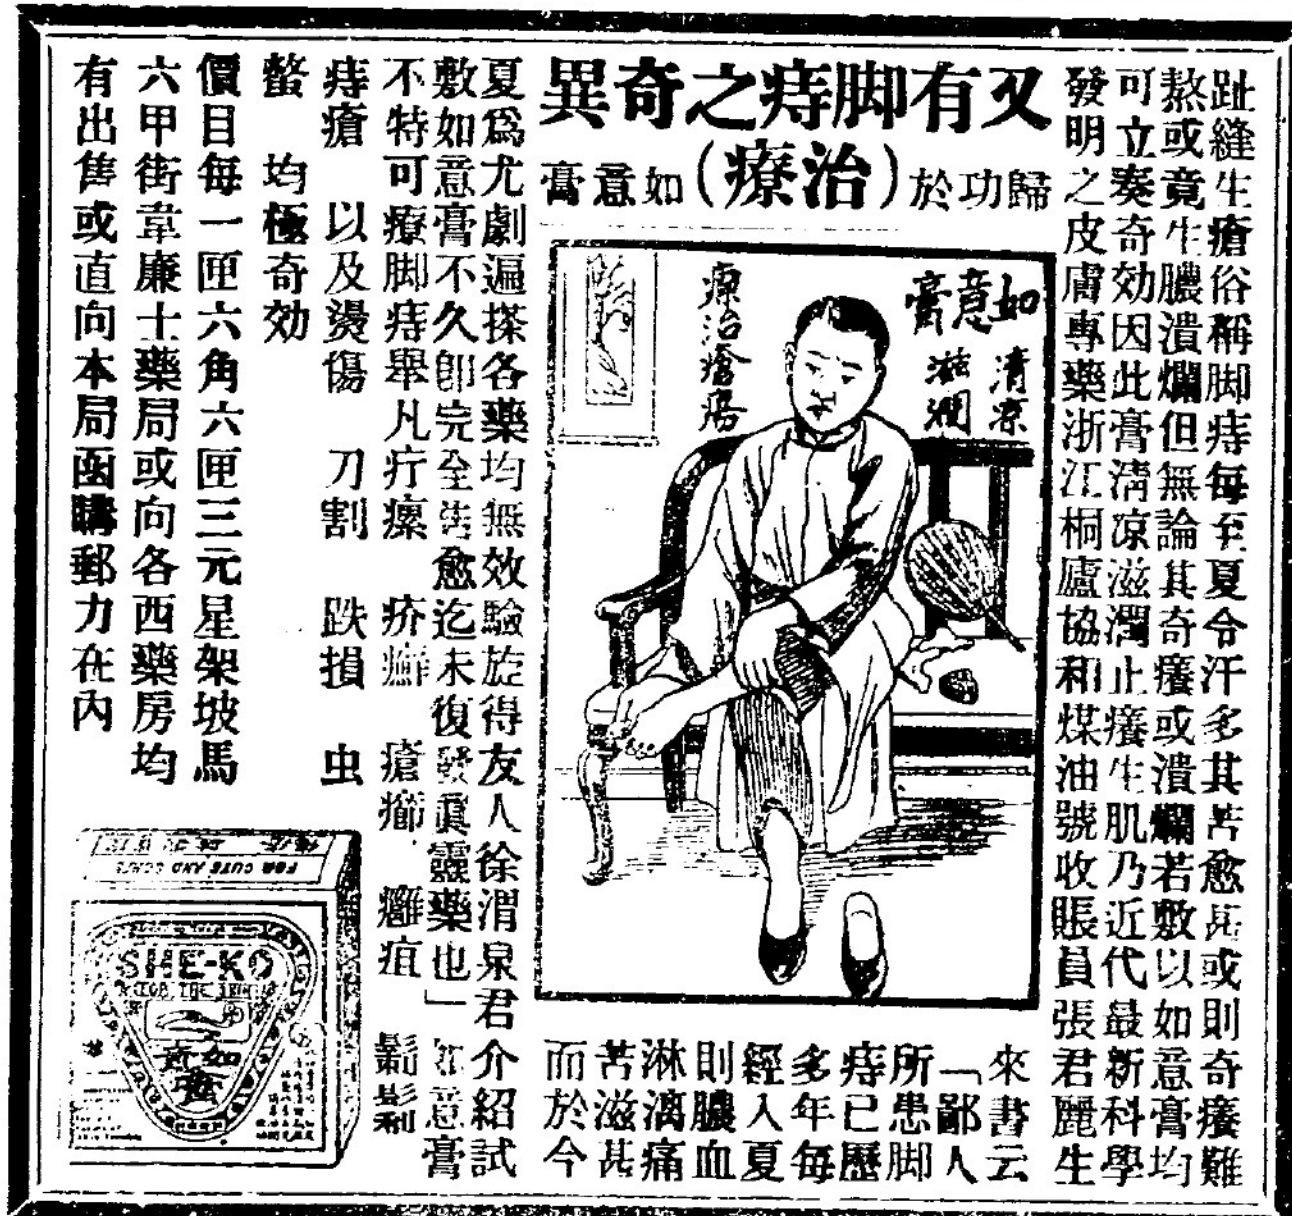 又有脚痔之奇異
歸功於(治療)如意膏
趾縫生瘡俗稱脚痔每至夏令汗多其苦愈甚或則奇癢難
熬或竟生膿潰爛但無論其奇癢或潰爛若敷以如意膏均
可立奏奇効因此膏清凉滋潤止癢生肌乃近代最新科學
發明之皮膚專藥浙江桐廬協和煤油號收賬員張君麗生
來書云
「鄙人
所患脚
痔已歷
多年每
經入夏
則膿血
淋漓痛
苦滋甚
而於今
夏爲尤劇遍搽各藥均無效驗旋得友人徐渭泉君介紹試
敷如意膏不久卽完全告愈迄未復發眞靈藥也」如意膏
不特可療脚痔舉凡疔瘰 疥癬 瘡癤 癰疽 鬎鬁
痔瘡 以及燙傷 刀割 跌損 虫
螫 均極奇効
價目每一匣六角六匣三元星架坡馬
六甲街韋廉士藥局或向各西藥房均
有出售或直向本局函購郵力在內
如意膏
清凉
滋潤
療治瘡瘍
FOR CUTS AND
SHE-KO
FOR THE SKIN
如意膏